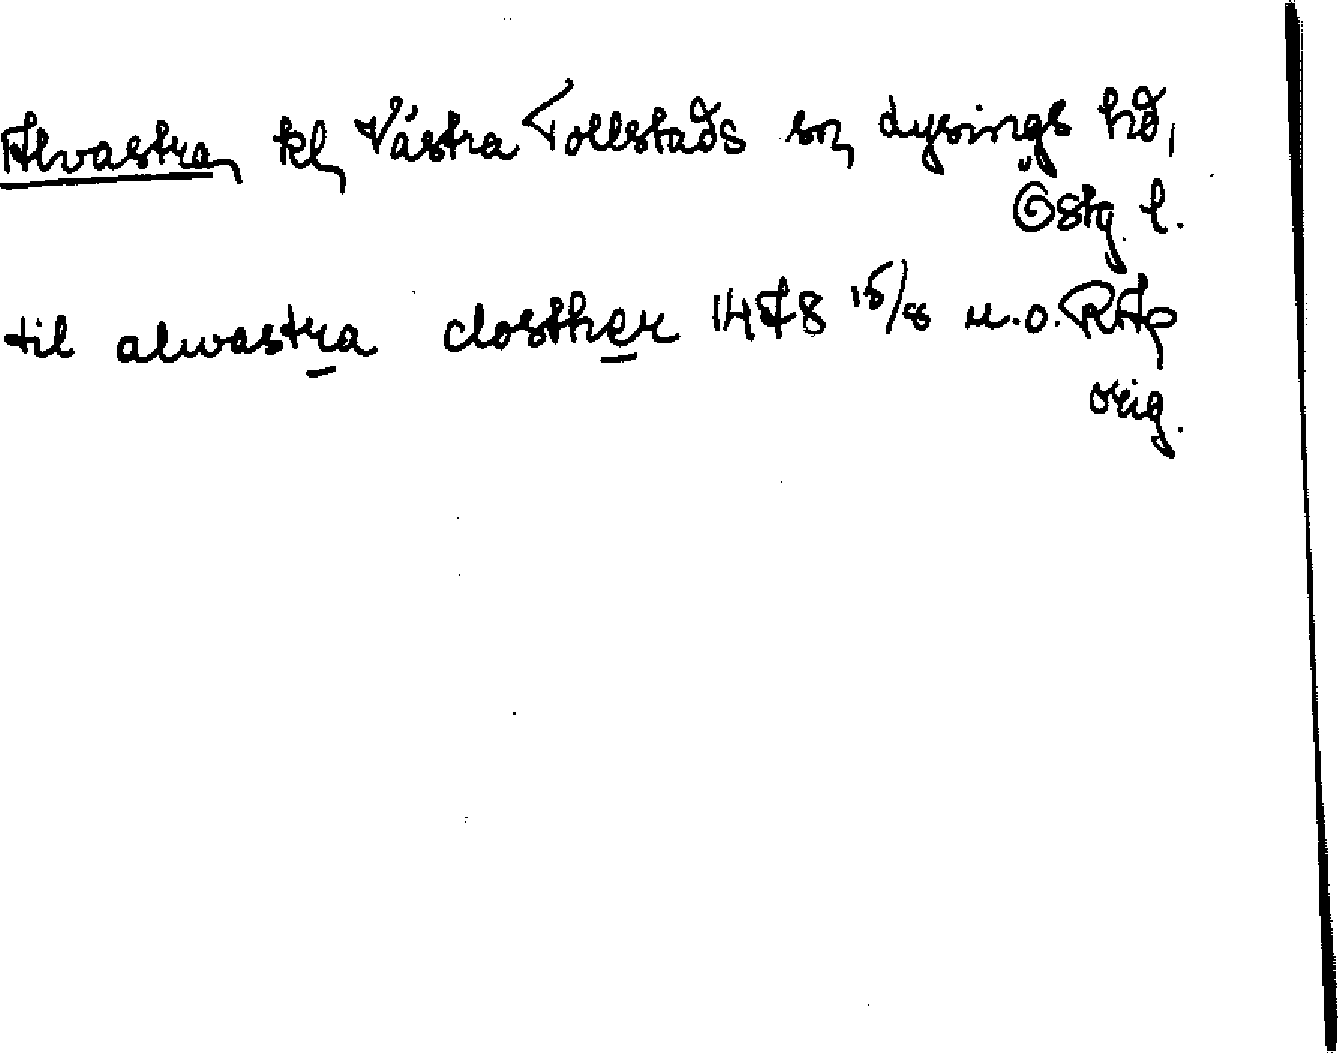 Alvastra, kl, Västra Tollstads sn, Lysings hd,
Östg. l.
til alwastra closther 1478 15/8 u.o. RAp
orig.